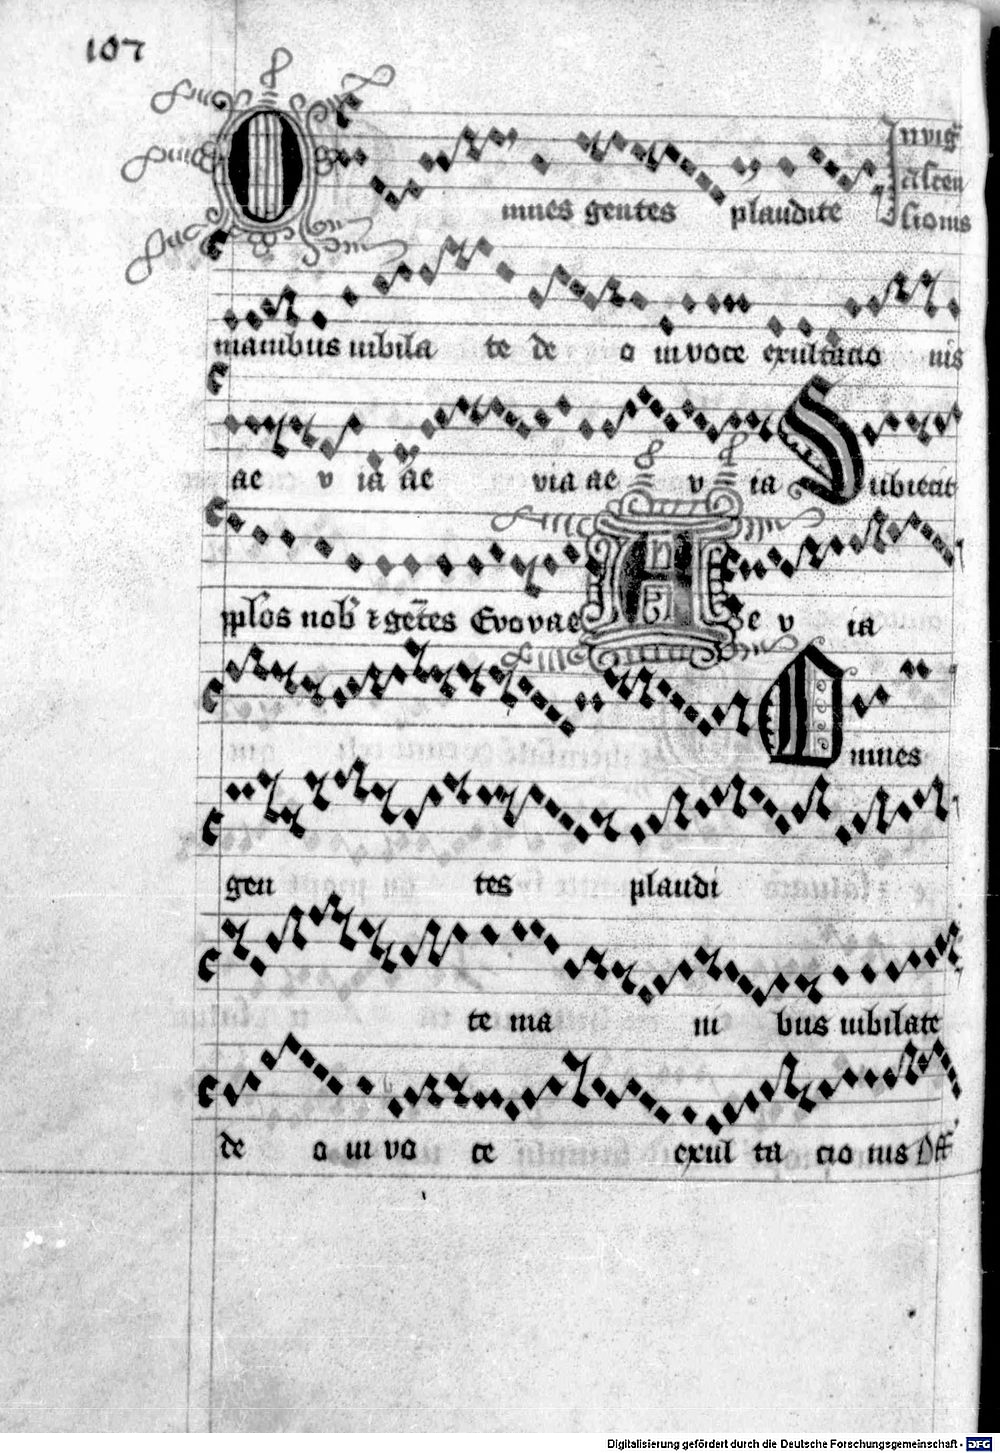 107
Omnes gentes plaudite In vig̅
ascen
sionis
manibus iubila te de o in voce exultacio nis
ae v ia ae via ae v ia Subiecit
pplos nob̅ ⁊ ge̅tes Evovae Ae v ia
Omnes
gen tes plaudi
te ma ni bus iubilate
de o in vo ce exul ta cio nis Off̅
Digitalisierung gefördert durch die Deutsche Forschungsgemeinschaft - DFG